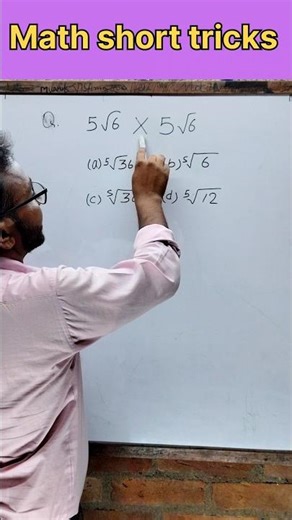 Math short tricks
Q. 5√6 × 5√6
(a) ⁵√36 (b) ⁵√6
(c) ⁵√3 (d) ⁵√12